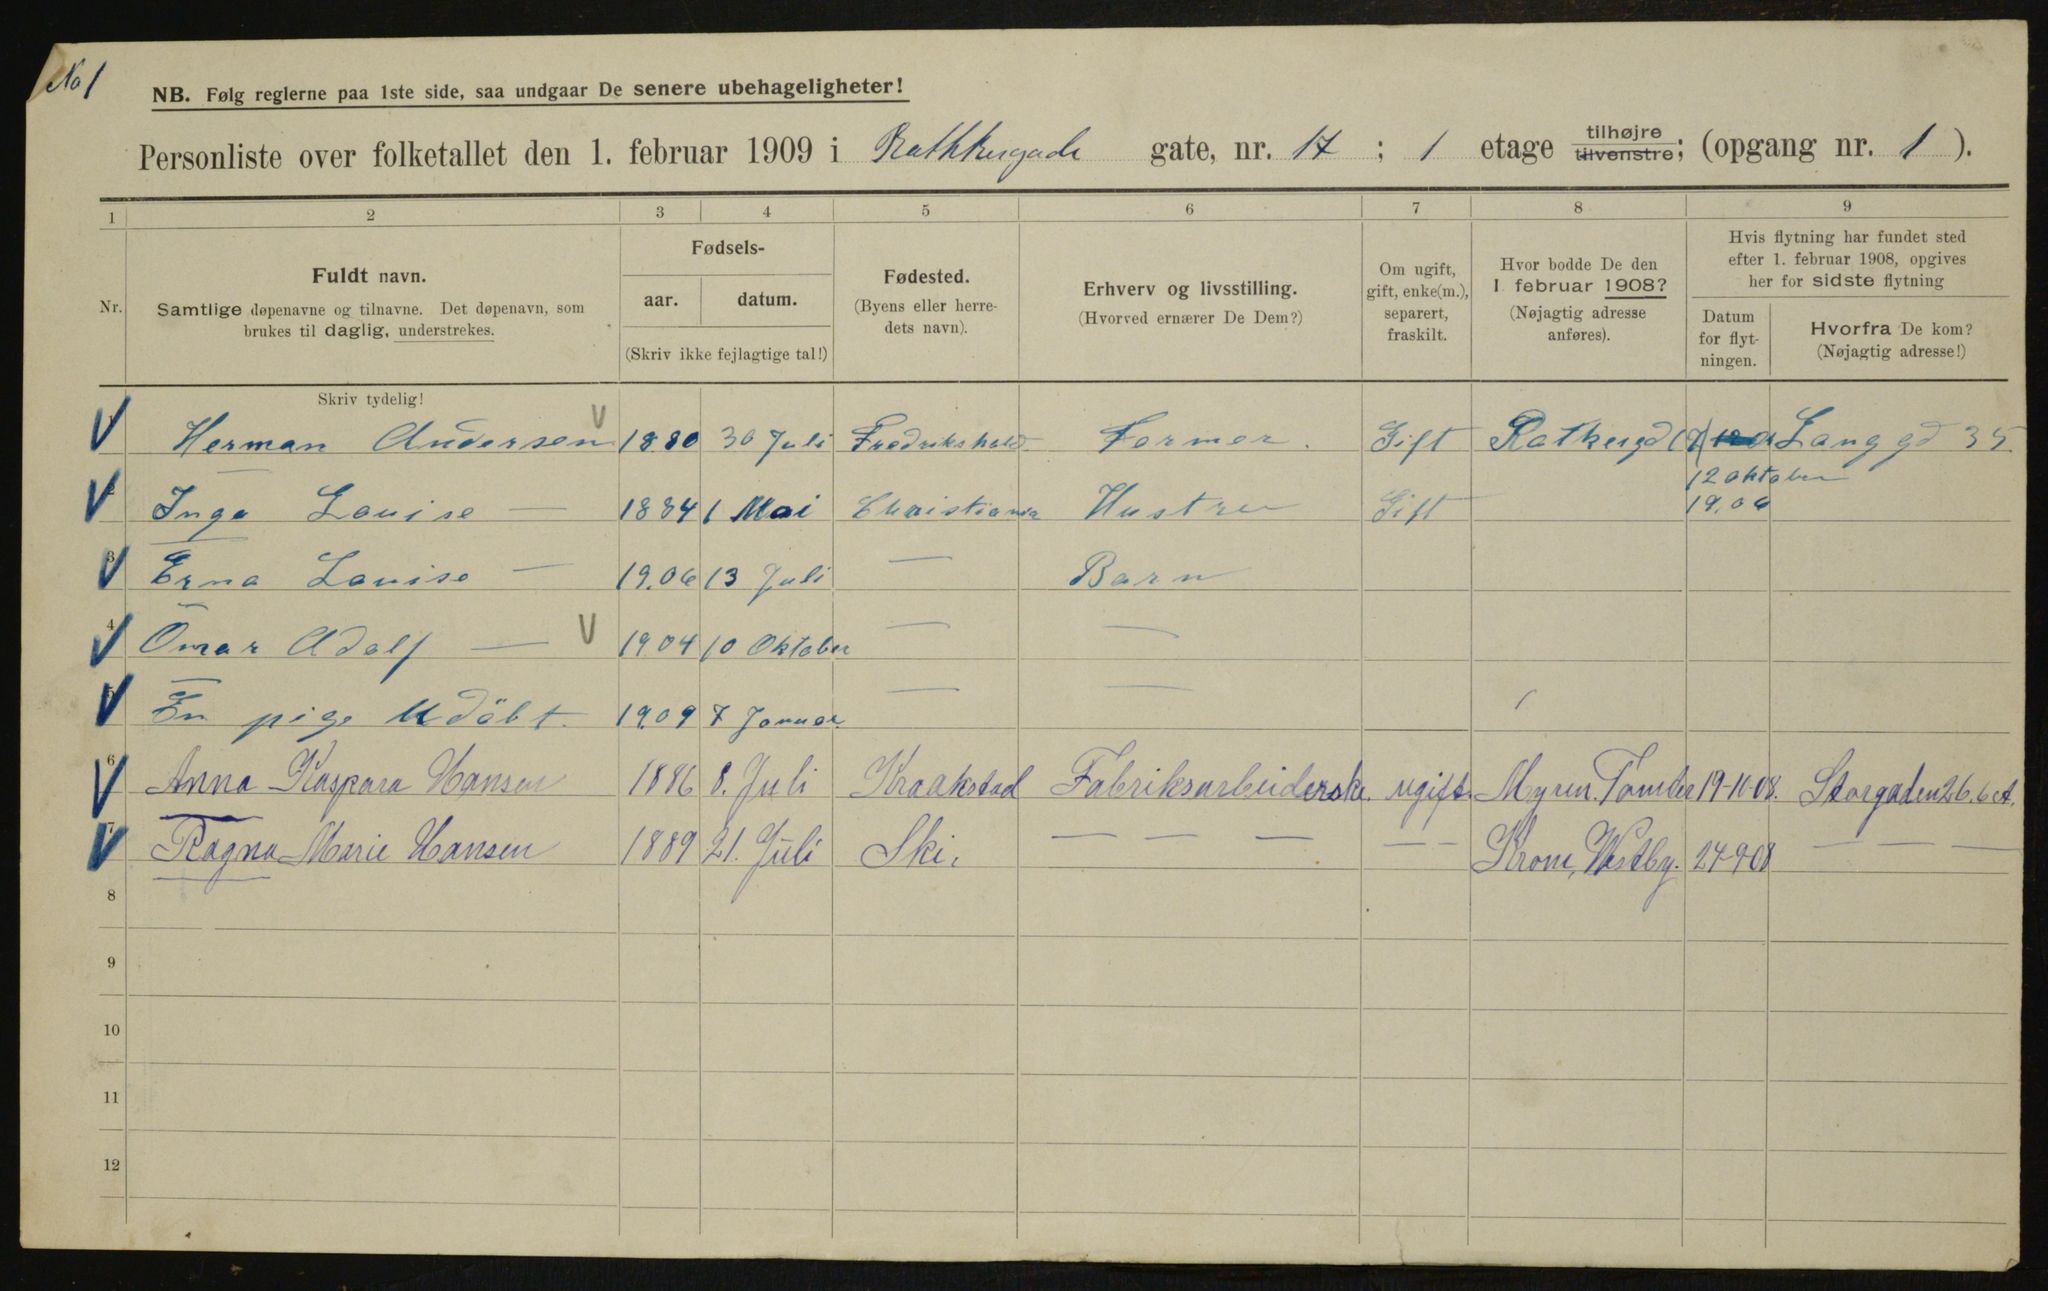 No 1
NB. Følg reglerne paa 1ste side, saa undgaar De senere ubehageligheter!
Personliste over folketallet den 1. februar 1909 i Rathkesgade gate, nr. 17 ; 1 etage tilhøjre tilvenstre; (opgang nr. 1 ).
1 2 3 4 5 6 7 8 9
Nr.
Fuldt navn.
Samtlige døpenavne og tilnavne. Det døpenavn, som
brukes til daglig, understrekes.
Skriv tydelig!
Fødsels-
aar. datum.
(Skriv ikke fejlagtige tal!)
Fødested.
(Byens eller herre-
dets navn).
Erhverv og livsstilling.
(Hvorved ernærer De Dem?)
Om ugift,
gift, enke(m.),
separert,
fraskilt.
Hvor bodde De den
1 februar 1908?
(Nøjagtig adresse
anføres).
Hvis flytning har fundet sted
efter 1. februar 1908, opgives
her for sidste flytning
Datum
for flyt-
ningen.
Hvorfra De kom?
(Nøjagtig adresse!)
1 Herman Andersen 1880 30 Juli Fredrikshald Former. Gift Ratkesgd 17 Langgd 35
12 oktober
19.06
2 Inga Louise — 1884 1 Mai Christiania Hustru Gift
3 Erna Louise — 19.06 13 Juli — Barn
4 Omar Adolf — 19.04 10 Oktober — —
5 En pige Udöbt. 19.09 7 Januar. — —
6 Anna Kaspara Hansen 1886 8. Juli Kraakstad Fabriksarbeiderske. ugift. Myren. Tomter 19-10-08. Storgaden 26. 6 et.
7 Ragna Marie Hansen 1889 21. Juli Ski. — — — — — Krom, Vestby. 24-9-08 — — —
8
9
10
11
12